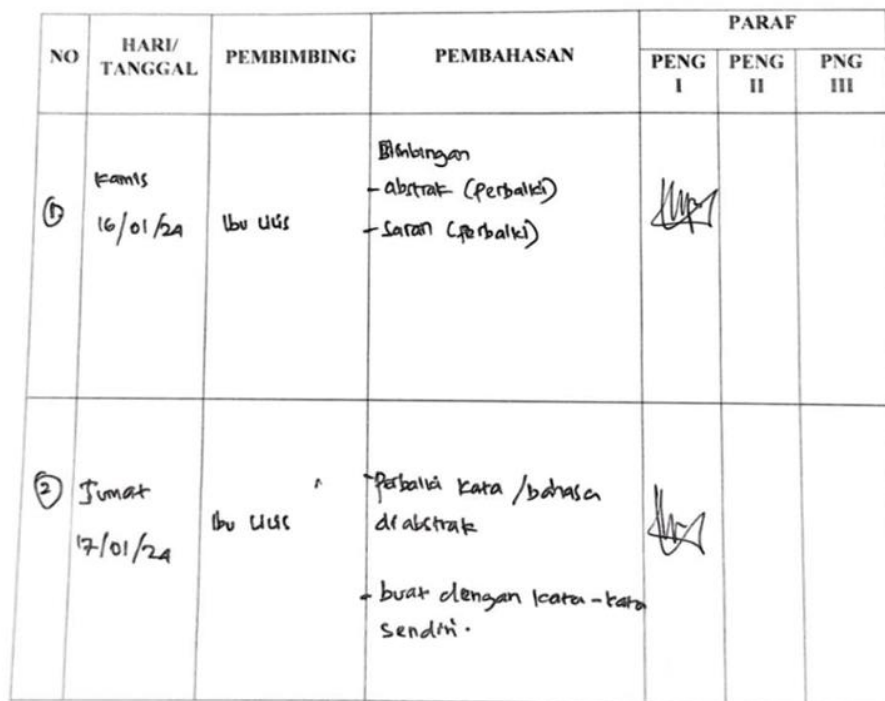 NO
HARI/
TANGGAL
PEMBIMBING
PEMBAHASAN
PARAF
PENG
I
PENG
II
PNG
III
1.
Kamis
16/01/24
Ibu Lilis
Bimbingan
- abstrak (Perbaiki)
- Saran (Perbaiki)
2
Jumat
17/01/24
Ibu Lilis
- Perbaiki kata / bahasa
di abstrak
- buat dengan kata-kata
sendiri.